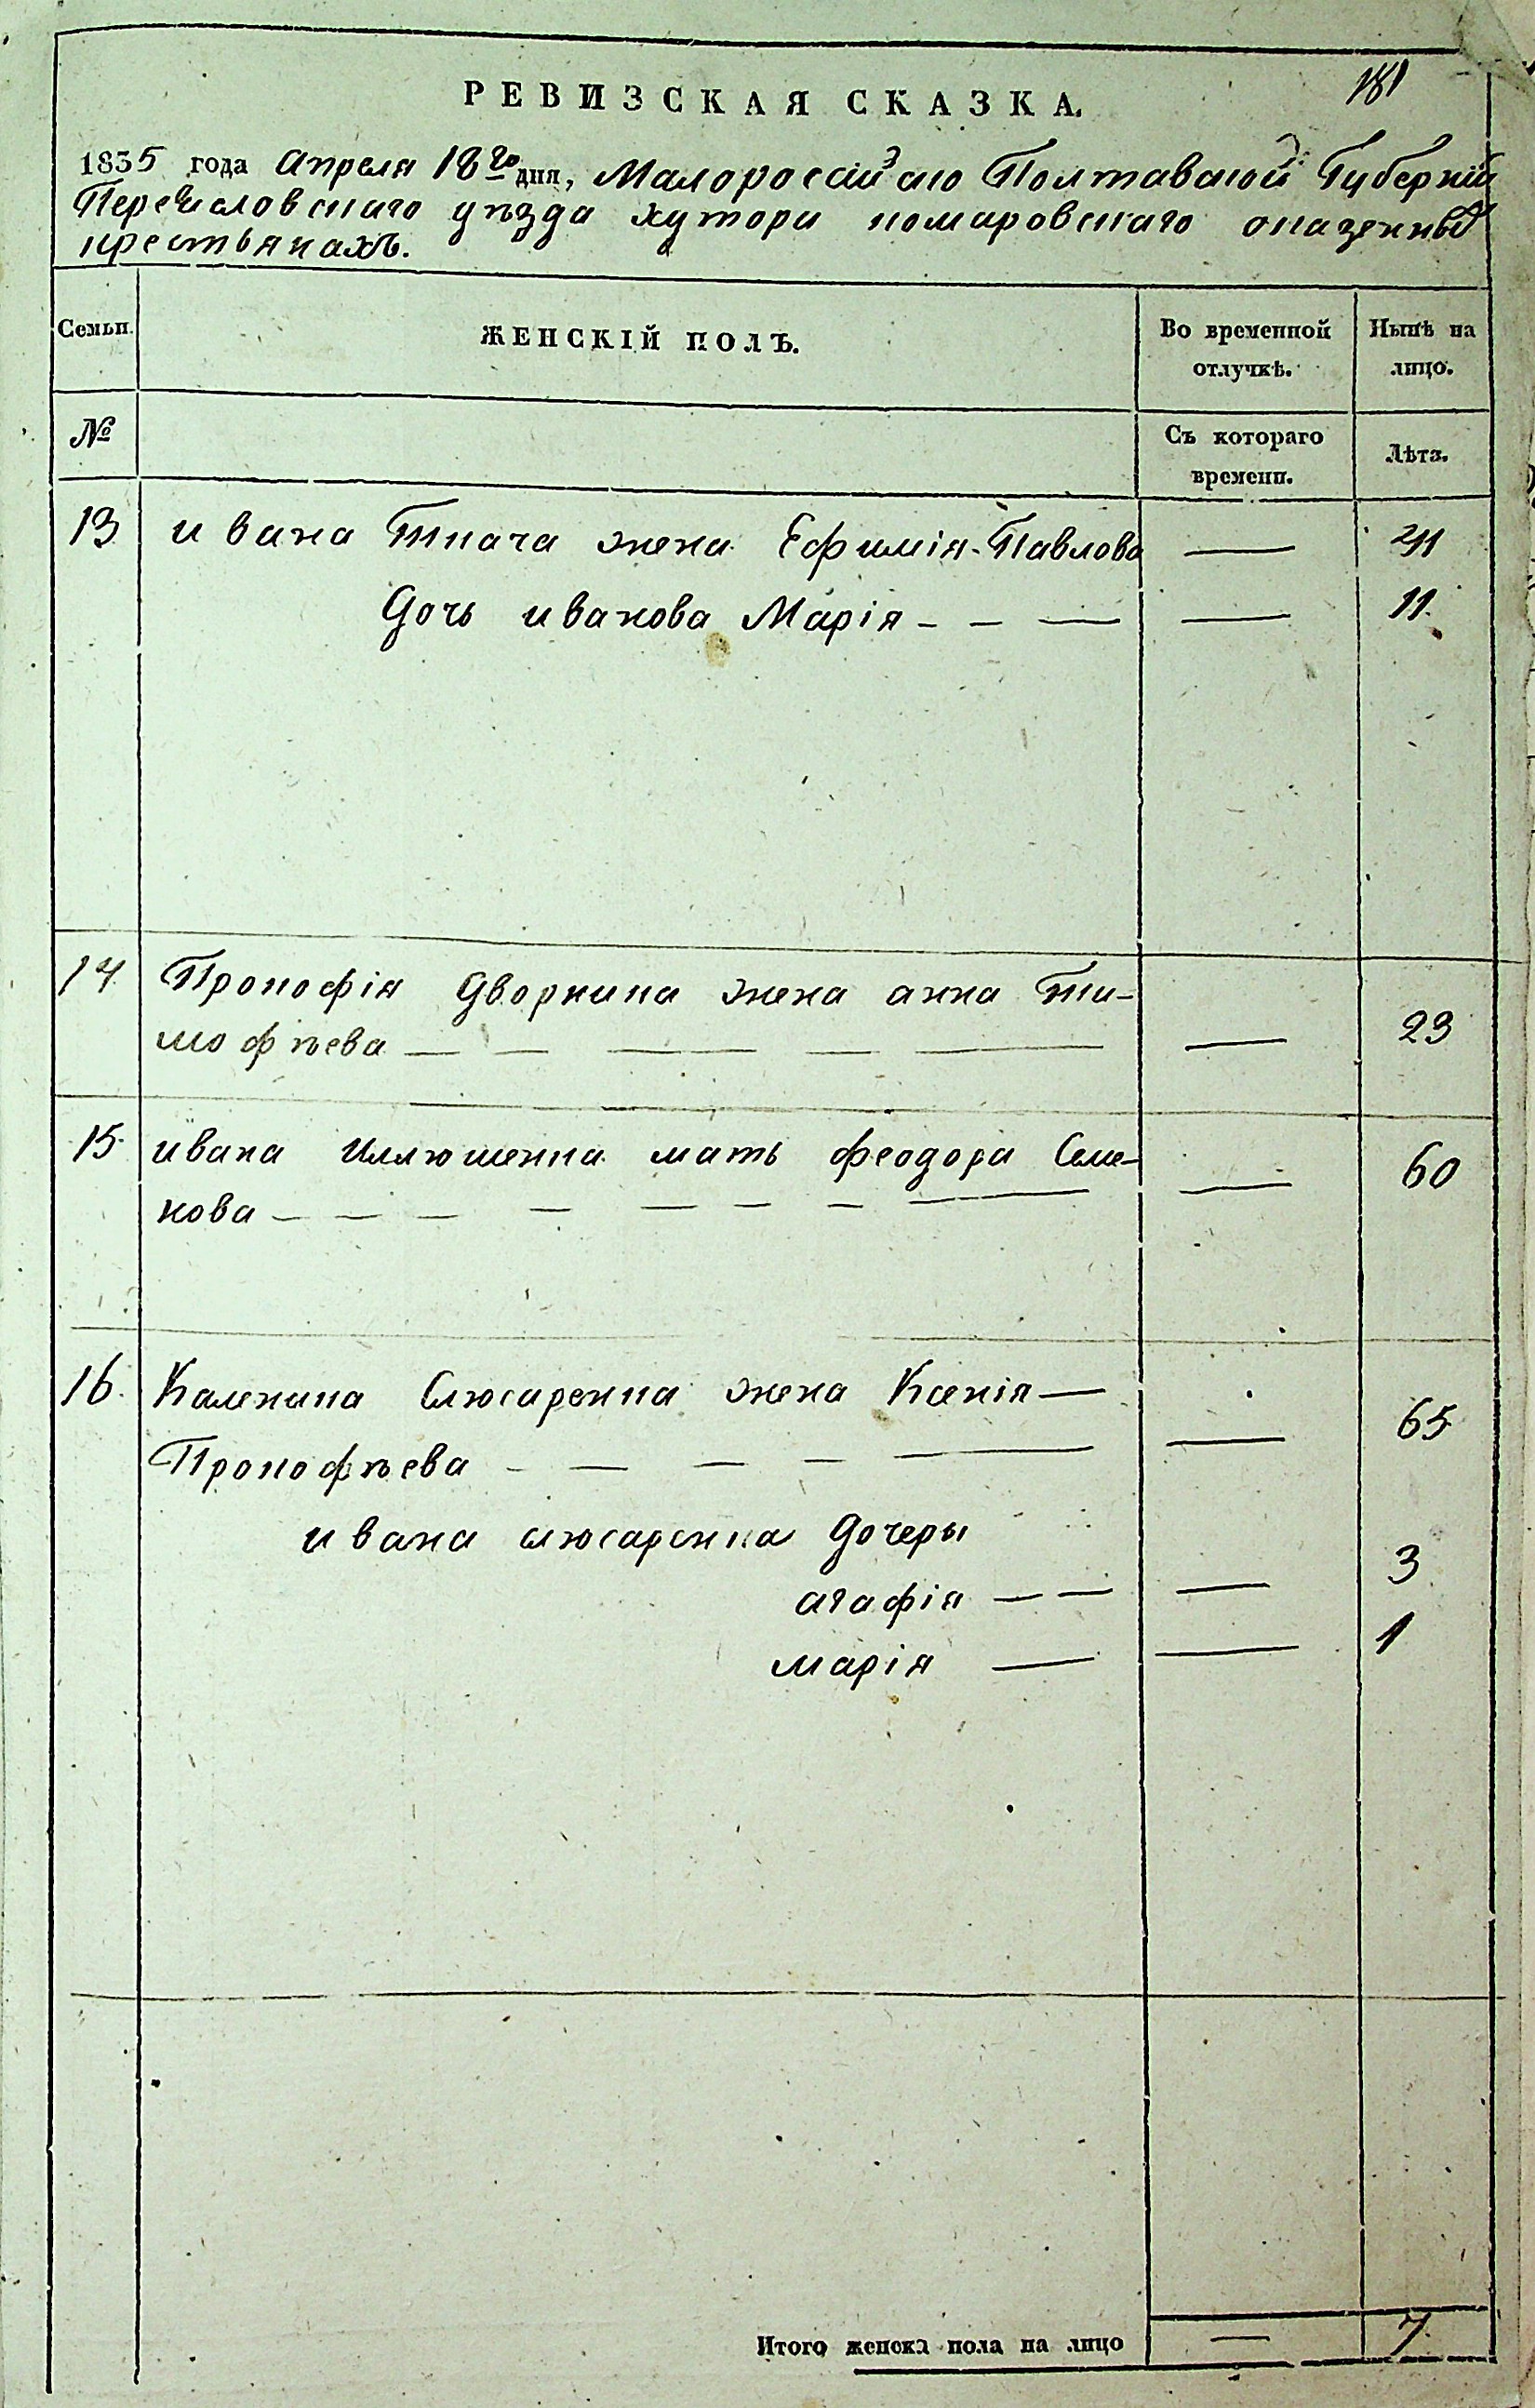 181
РЕВИЗСКАЯ СКАЗКА.
1835 года Апреля 18го дня, Малороссійскаго Полтавской Губерніи
Переясловскаго уѣзда хутора комаровскаго оказенных
крестьянахъ.
Семьи. ЖЕНСКІЙ ПОЛЪ. Во временной отлучкѣ. Нынѣ на лицо.
№ Съ котораго времени. Лѣта.
13 ивана Ткача жена Ефимія Павлова —
Дочь иванова Марія - - — — 11.
14 Прокофія Дворкина жена анна Ти-
мофѣева — — — — — — 23
15 ивана Иллюшенка мать феодора Семе-
нова — — — — — — — — — 60
16. Каленика Слюсаренка жена Ксенія —
Прокофѣева - — — — — — 65
ивана слюсаренка Дочеры
агафія — — — 3
марія — — 1
Итого женска пола на лицо — 7.